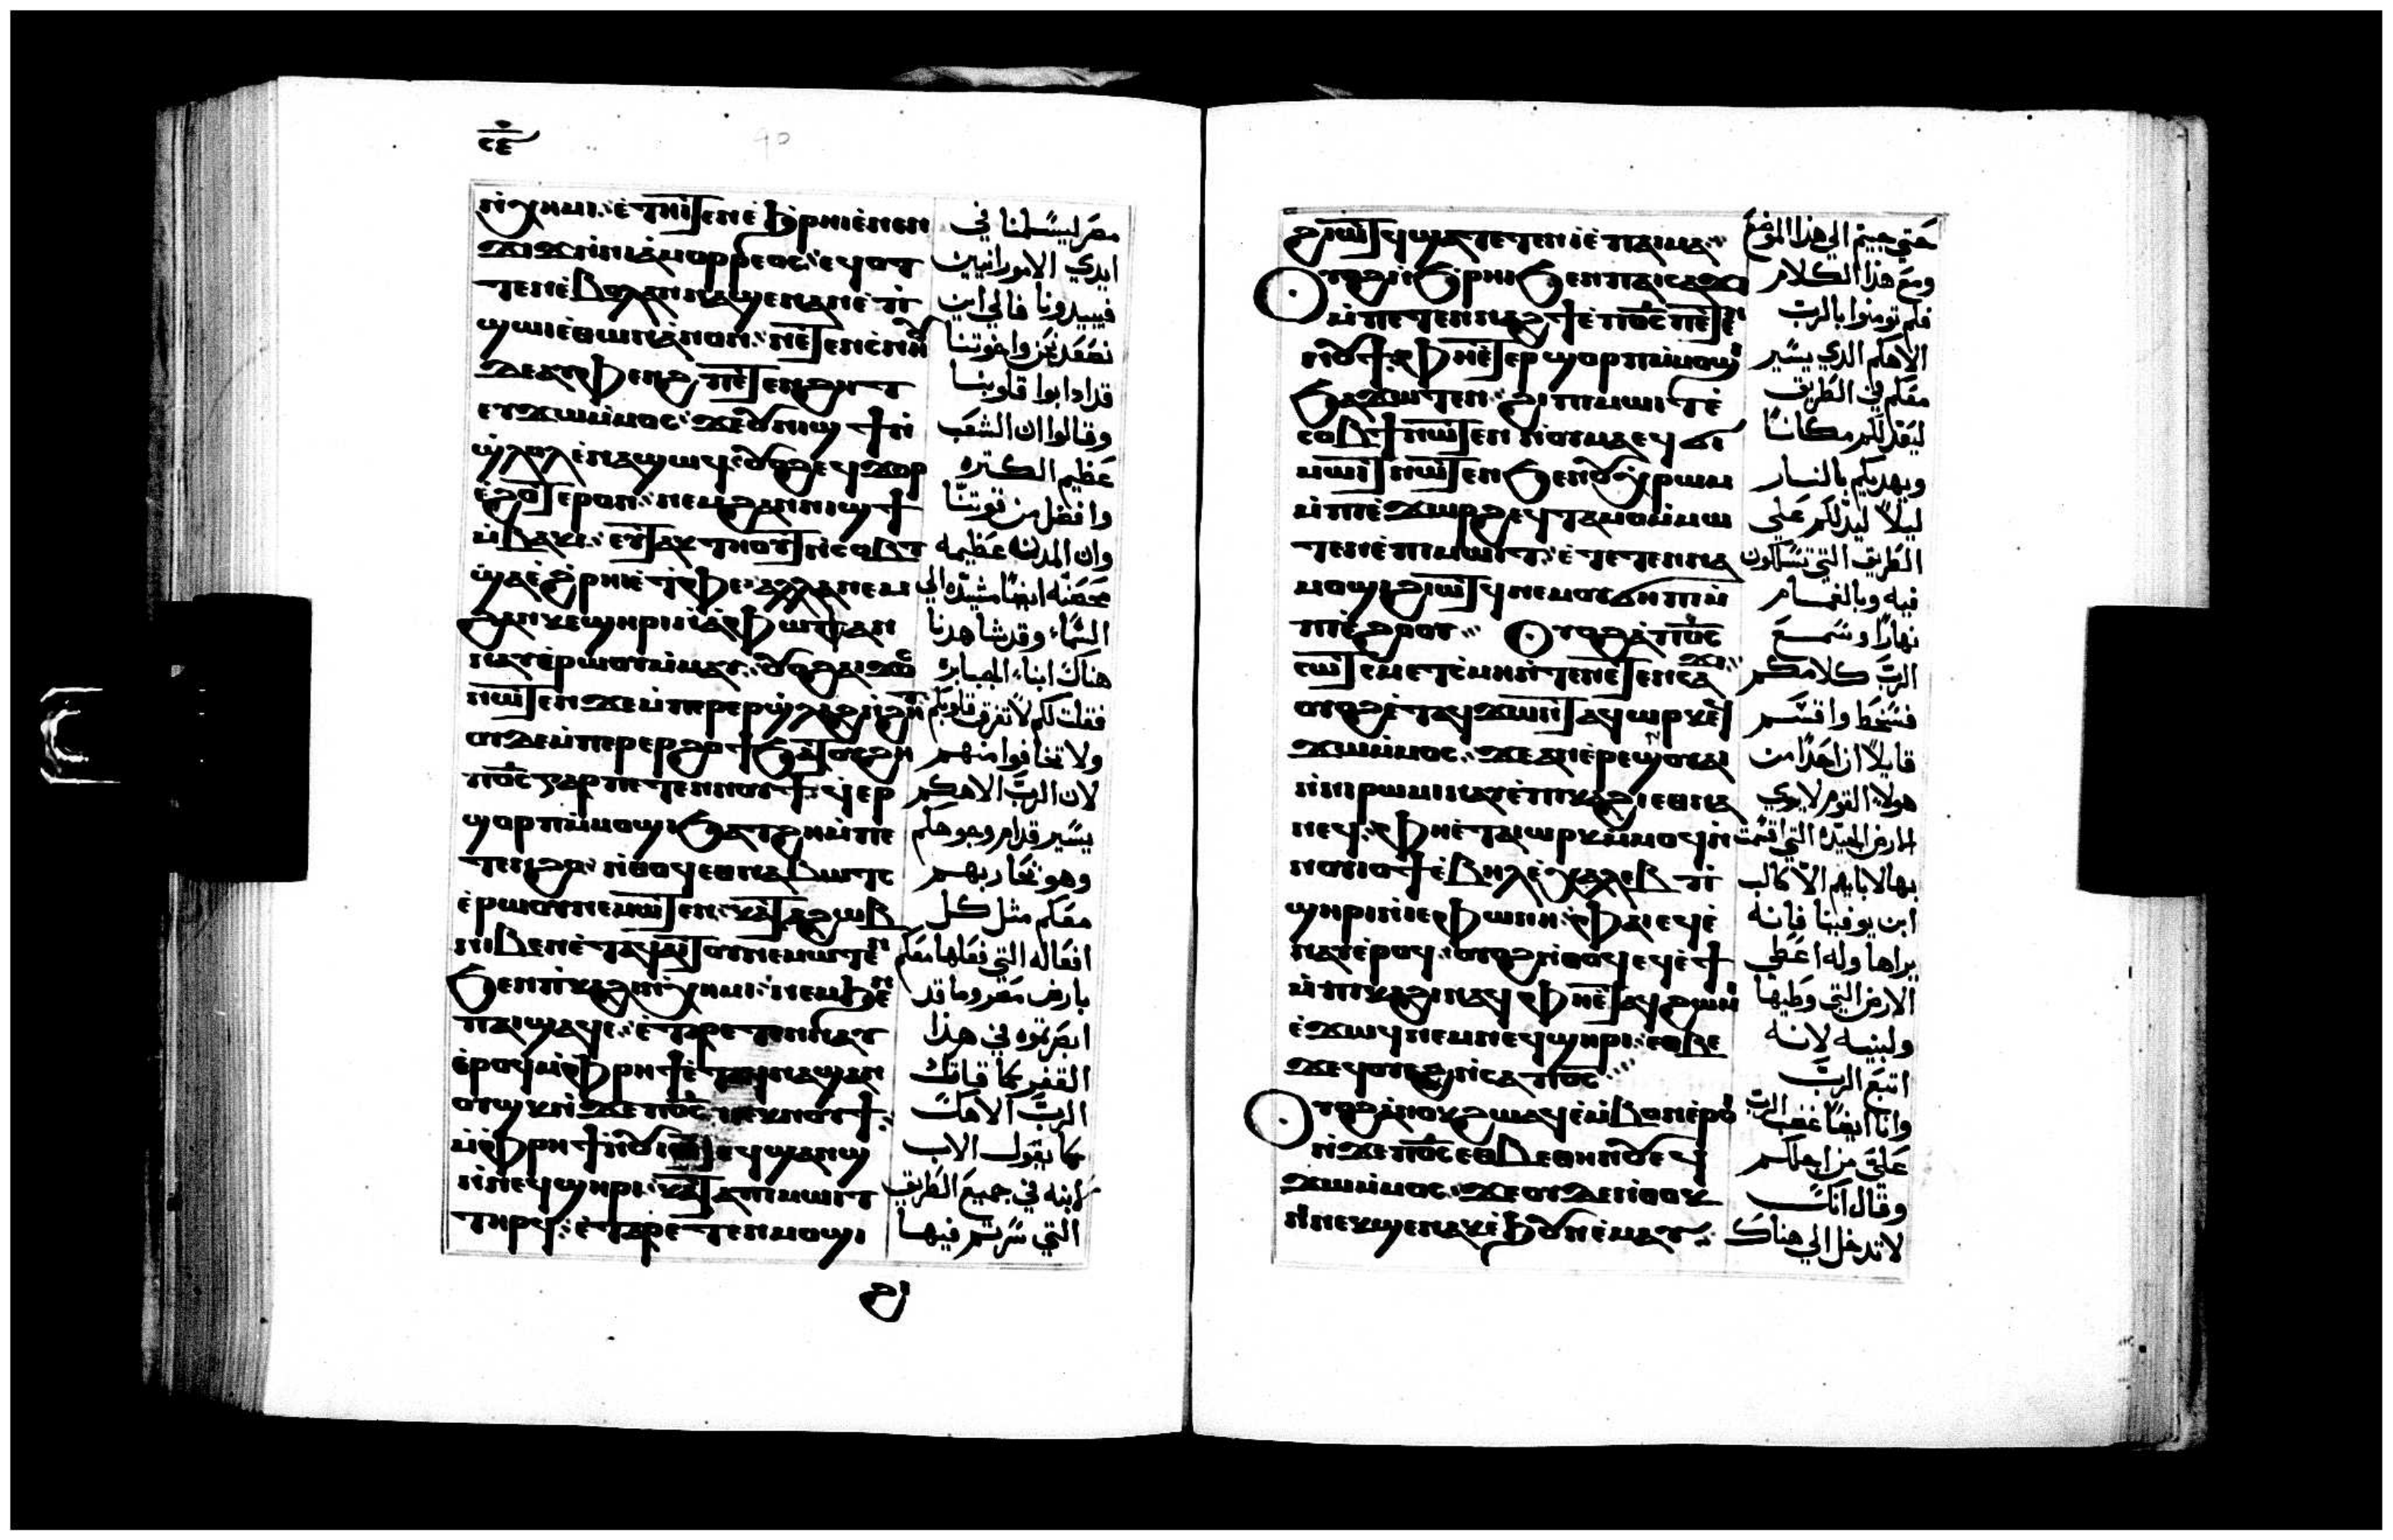 ⲛ̇ⲭⲏⲙⲓ: ⲉ̇ⲧⲏⲓⲧⲉⲛ ⲉ̇ϧⲣⲏⲓ ⲉ̇ⲛⲉⲛ
ϫⲓϫ ⲛ̇ⲛⲓⲁ̇ⲙⲟⲣⲣⲉⲟⲥ: ⲉϥⲟⲧ
ⲧⲉⲛ ⲉ̇ⲃⲟⲗ ⲁⲛⲛⲁϣⲉⲛⲁⲛ ⲉ̇ⲑ
ϣⲱⲓ ⲉ̇ⲑⲱⲛ ⲁ̇ⲛⲟⲛ: ⲛⲉⲧⲉⲛⲥ̇ⲛⲏⲟⲩ
ⲇⲉ ⲁⲩⲫⲉⲛϩ ⲡⲉⲧⲉⲛϩⲏⲧ
ⲉⲩϫⲱ ⲙ̇ⲙⲟⲥ: ϫⲉ ⲟⲩⲛⲓϣϯ ⲛ̇
ϣ̇ⲗⲟⲗ ⲉ̇ⲛⲁϣⲱϥ: ⲟⲩⲟϩ ⲉϥϫⲟⲣ
ⲉ̇ϩⲟⲧⲉⲣⲟⲛ: ⲛⲉⲙ ϩⲁⲛⲛⲓϣϯ
ⲙ̇ⲃⲁⲕⲓ: ⲉⲩⲧⲁⲕⲧⲏⲟⲩⲧ ⲛ̇ⲥⲟⲃⲧ
ϣⲁ ⲉ̇ϩ̇ⲣⲏⲓ ⲉ̇ⲧ̇ⲫⲉ: ⲁⲗⲗⲁ ⲛⲉⲙ
ϩⲁⲛⲕⲉϣⲏⲣⲓ ⲛ̇ⲁ̇ⲫⲱϥ ⲁⲛ
ⲛⲁⲩ ⲉ̇ⲣⲱⲟⲩ ⲙ̇ⲙⲁⲩ: ⲟⲩⲟϩ ⲁⲓϫⲟⲥ
ⲛⲱⲧⲉⲛ ϫⲉ ⲙ̇ⲡⲉⲣⲉⲣϣ̇ⲗⲁϩ ⲛ̇ϩⲏⲧ
ⲟⲩⲇⲉ ⲙ̇ⲡⲉⲣⲉⲣϩⲟϯ ϧⲁⲧⲟⲩϩⲏ
ⲡ̅ⲟ̅ⲥ̅ ⲅⲁⲣ ⲡⲉⲧⲉⲛⲛⲟⲩϯ: ϥⲉⲣ
ϣⲟⲣⲡ ⲙ̇ⲙⲟϣⲓ ϧⲁⲧϩⲏ ⲙ̇ⲡⲉ
ⲧⲉⲛϩⲟ: ⲛ̇ⲑⲟϥ ⲉⲑⲛⲁⲃⲱⲧⲥ
ⲉ̇ⲣⲱⲟⲩ ⲛⲉⲙⲱⲧⲉⲛ: ⲕⲁⲧⲁ ϩⲱⲃ
ⲛⲓⲃⲉⲛ ⲉ̇ⲧⲁϥⲁⲓⲧⲟⲩ ⲛⲉⲙⲱⲧⲉⲛ
ϧⲉⲛ ⲡ̇ⲕⲁϩⲓ ⲛ̇ⲭⲏⲙⲓ: ⲛⲉⲙ ϧⲉⲛ
ⲡⲁⲓϣⲁϥⲉ: ⲉ̇ⲧⲁⲣⲉⲧⲉⲛⲛⲁⲩ
ⲉ̇ⲣⲟϥ ⲙ̇ⲫ̇ⲣⲏϯ ⲉ̇ⲧⲁϥϣⲁⲛ
ⲟⲩϣⲕ ⲛ̇ϫⲉ ⲡ̅ⲟ̅ⲥ̅ ⲡⲉⲕⲛⲟⲩϯ:
ⲙ̇ⲫ̇ⲣⲏϯ ⲛ̇ⲟⲩⲓⲱⲧ ⲉϥϣⲁⲛϣ
ⲛ̇ⲡⲉϥϣⲏⲣⲓ: ⲕⲁⲧⲁ ⲡⲓⲙⲱⲓⲧ
ⲧⲏⲣϥ: ⲉ̇ⲧⲁⲣⲉⲧⲉⲛⲙⲟϣⲓ
ϩⲓ
مصر ليسلمنا في
ايدي الامورانيين
فيبيدونا فالي اين
نصعد نحن واخوتنا
قد اذابوا قلوبنا
وقالوا ان الشعب
عظيم الكتره
وافضل من قوتنا
وان المدن عظيمه
محصنه ايضا مشيده الي
السماء وقد شاهدنا
هناك ابناء الجبابره
فقلت لكم لا تنزق قلوبكم
ولا تخافوا منهم
لان الرب الاهكم
يسير قدام وجوهكم
وهو يحاربهم
معكم مثل كل
افعاله التي فعلها معكم
بارض مصر وما قد
ابصرتموه في هذا
القفر كما قاتك
الرب الاهك
كما يقول الاب
لابنه في جميع الطريق
التي سرتم فيها
ϩⲓⲱⲧϥ ϣⲁⲧⲉⲧⲉⲛⲓ̇ ⲉ̇ⲡⲁⲓⲙⲁ:
ⲟⲩⲟϩ ⲛ̇ϧ̇ⲣⲏⲓ ϧⲉⲛ ⲡⲁⲓⲥⲁϫⲓ
ⲙ̇ⲡⲉⲧⲉⲛⲛⲁϩϯ ⲉ̇ⲡ̅ⲟ̅ⲥ̅ ⲡⲉⲧⲉⲛ
ⲛⲟⲩϯ: ⲫⲏⲉⲧⲉⲣϣⲟⲣⲡ ⲙ̇ⲙⲟϣⲓ
ϧⲁϫⲱⲧⲉⲛ: ϩⲓ ⲡⲓⲙⲱⲓⲧ ⲉ̇
ⲥⲟⲃϯ ⲛⲱⲧⲉⲛ ⲛ̇ⲟⲩⲙⲁ ⲉϥϭⲓ
ⲙⲱⲓⲧ ⲛⲱⲧⲉⲛ ϧⲉⲛ ⲟⲩⲭ̇ⲣⲱⲙ
ⲙ̇ⲡⲓⲉ̇ϫⲱⲣϩ ⲉϥⲧⲁⲙⲟ ⲙ̇ⲙⲱ
ⲧⲉⲛ ⲉ̇ⲡⲓⲙⲱⲓⲧ: ⲉ̇ⲧⲉⲧⲉⲛⲛⲁ
ⲙⲟϣⲓ ϩⲓⲱⲧϥ ⲛⲉⲙ ⲟⲩϭⲏⲡⲓ ⲙ̇
ⲡⲓⲉ̇ϩⲟⲟⲩ: ⲟⲩⲟϩ ⲁ̇ ⲡ̅ⲟ̅ⲥ̅
ⲥⲱⲧⲉⲙ ⲉ̇ⲧ̇ⲥ̇ⲙⲏ ⲛ̇ⲧⲉ ⲛⲉⲧⲉⲛⲥⲁϫⲓ
ⲟⲩⲟϩ ⲉ̇ⲧⲁϥϫⲱⲛⲧ ⲁϥⲱⲣⲕ ⲉϥ
ϫⲱ ⲙ̇ⲙⲟⲥ: ϫⲉ ⲁⲛ ⲉ̇ⲣⲉ ⲟⲩⲁⲓ
ⲛ̇ⲛⲓⲣⲱⲙⲓ ⲛⲁⲩ ⲉ̇ⲡⲓⲕⲁϩⲓ ⲉⲑⲛⲁ
ⲛⲉϥ: ⲫⲏⲉ̇ⲧⲁⲓⲱⲣⲕ ⲙ̇ⲙⲟϥ ⲛ̇
ⲛⲟⲩⲓⲟϯ ⲉ̇ⲃⲏⲗ ⲉ̇ⲭⲁⲗⲉⲃ ⲡ̇
ϣⲏⲣⲓ ⲛ̇ⲓⲉⲫⲱⲛⲏ: ⲫⲁⲓ ⲉϥⲉ̇
ⲛⲁⲩ ⲉ̇ⲣⲟϥ: ⲟⲩⲟϩ ⲛ̇ⲑⲟϥ ⲉϥⲉ̇ϯ
ⲙ̇ⲡⲓⲕⲁϩⲓ ⲛⲁϥ ⲫⲏⲉⲧⲁϥϩⲱⲙⲓ
ⲉ̇ϫⲱϥ ⲛⲉⲙ ⲛⲉϥϣⲏⲣⲓ: ⲉⲑⲃⲉ
ϫⲉ ϥⲟⲩⲉϩ ⲛ̇ⲥⲁ ⲡ̅ⲟ̅ⲥ̅:
ⲟⲩⲟϩ ⲁ̇ⲛⲟⲕ ϩⲱ ⲁϥⲉ̇ⲙⲃⲟⲛ ⲉ̇ⲣⲟⲓ
ⲛ̇ϫⲉ ⲡ̅ⲟ̅ⲥ̅ ⲉⲑⲃⲉⲑⲏⲛⲟⲩ ⲉϥ
ϫⲱ ⲙ̇ⲙⲟⲥ: ϫⲉ ⲟⲩⲇⲉ ⲛ̇ⲑⲟⲕ
ⲛ̇ⲛⲉⲕϣⲉⲛⲁⲕ ⲉ̇ϧⲟⲩⲛ ⲉ̇ⲙⲁⲩ:
حتي جيتم الي هذا الموضع
ومع هذا الكلام
فلم تومنوا بالرب
الاهكم الدي يسير
معكم في الطريق
ليعد لكم مكانا
ويهديكم بالنار
ليلا ليدلكم علي
الطريق التي تسلكون
فيه وبالغمام
نهارا وسمع
الرب كلامكم
فسخط واقسم
قايلا ان احدا من
هولاء القوم لا يري
الارض الجيده التي اقسمت
بها لابايهم الا كالب
ابن يوفينا فانه
يراها وله اعطي
الارض التي وطيها
ولبنيه لانه
اتبع الرب
وانا ايضا غضب الرب
علي من اجلكم
وقال انك
لا تدخل الي هناك